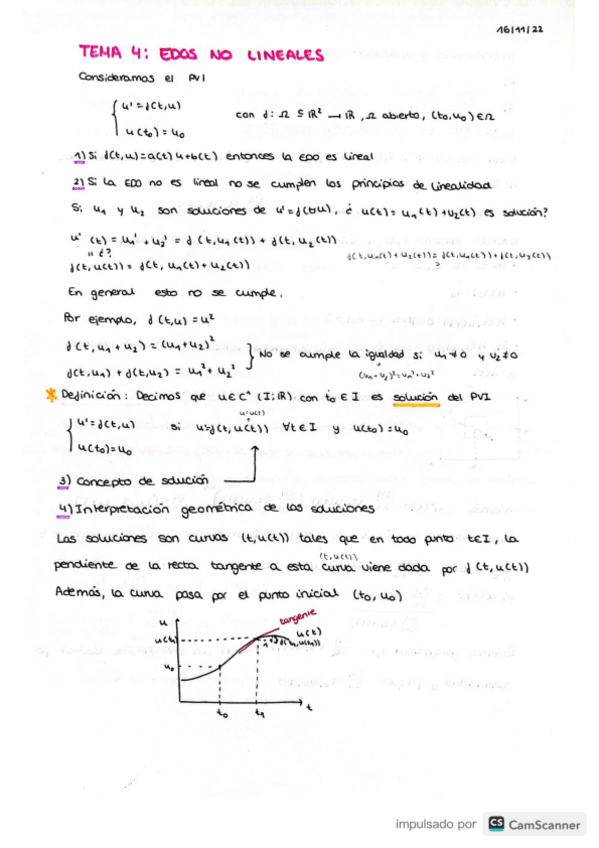 16/11/22
TEMA 4: EDOS NO LINEALES
Consideramos el PVI
u' = f(t,u)
u(t₀) = u₀
con f: Ω ⊆ ℝ² → ℝ, Ω abierto, (t₀,u₀) ∈ Ω
1) Si f(t,u) = a(t) u + b(t), entonces la EDO es lineal
2) Si la EDO no es lineal no se cumplen los principios de linealidad
Si u₁ y u₂ son soluciones de u' = f(t,u), ¿ u(t) = u₁(t) + u₂(t) es solución?
u'(t) = u₁' + u₂' = f(t, u₁(t)) + f(t, u₂(t))
" ¿?
f(t, u₁(t) + u₂(t)) = f(t, u₁(t)) + f(t, u₂(t))
?
f(t, u(t)) = f(t, u₁(t) + u₂(t))
En general esto no se cumple.
Por ejemplo, f(t,u) = u²
f(t, u₁ + u₂) = (u₁ + u₂)²
f(t, u₁) + f(t, u₂) = u₁² + u₂²
No se cumple la igualdad si u₁ ≠ 0 y u₂ ≠ 0
(u₁ + u₂)² = u₁² + u₂²
* Definición: Decimos que u ∈ C¹(I; ℝ) con t₀ ∈ I es solución del PVI
u = u(t)
u' = f(t,u)
u(t₀) = u₀
si u = f(t, u(t)) ∀t ∈ I y u(t₀) = u₀
3) Concepto de solución
4) Interpretación geométrica de las soluciones
Las soluciones son curvas (t, u(t)) tales que en todo punto t ∈ I, la
(t, u(t))
pendiente de la recta tangente a esta curva viene dada por f(t, u(t))
Además, la curva pasa por el punto inicial (t₀, u₀)
u
tangente
u(t)
u(t₁)
u₀
t₀
t₁
t
impulsado por CS CamScanner